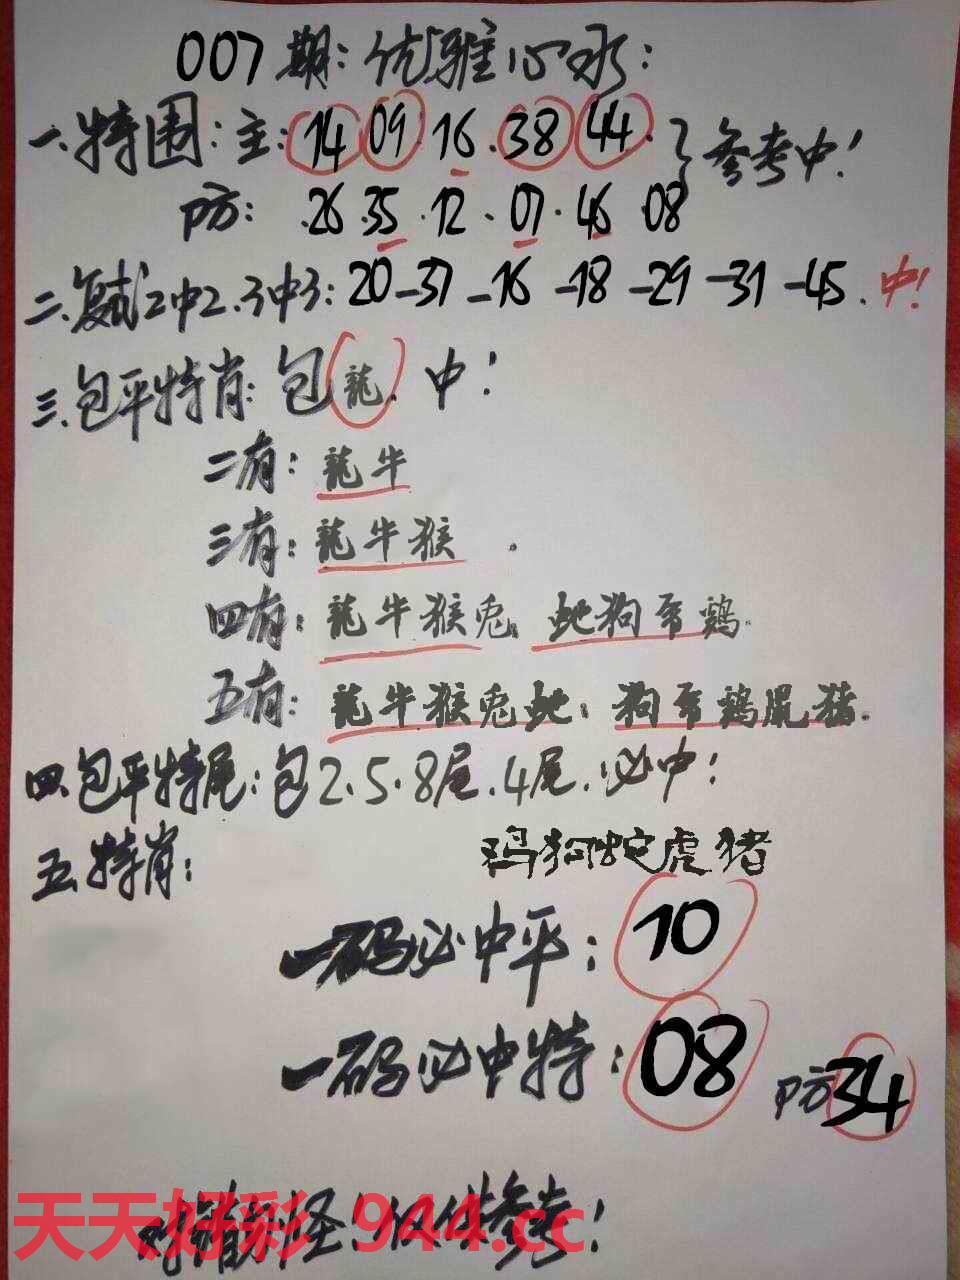 007期：优雅心水：
一.特围：主：14 09 16. 38 44. } 参考中！
防： .26 .35 .12 .07 .46 08
二.复式2中2.3中3：20-37-16-18-29-31-45. 中！
三.包平特肖：包龍. 中！
二有：龍牛
三有：龍牛猴.
四有：龍牛猴兎. 蛇狗马鷄.
五有：龍牛猴兎蛇. 狗马鷄鼠猪.
四.包平特尾：包2.5.8尾.4尾.必中！
五.特肖：
鸡狗蛇虎猪
一码必中平：10
一码必中特：08 防34
天天好彩.944.cc
仅供参考！